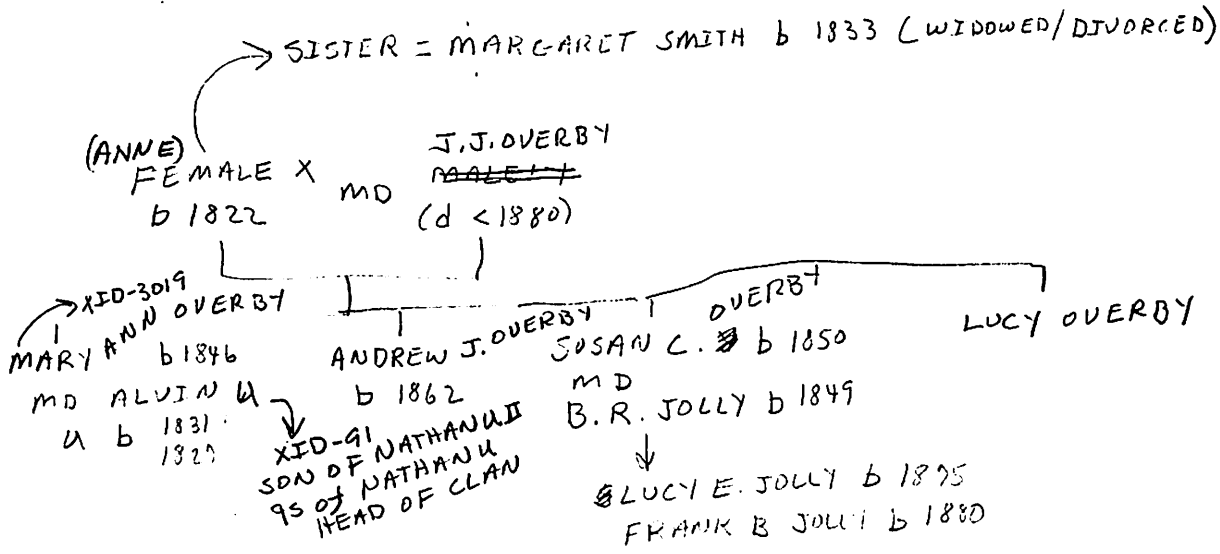 SISTER = MARGARET SMITH b 1833 (WIDOWED/DIVORCED)
(ANNE)
FEMALE X
b 1822
MD
J.J. OVERBY
(d < 1880)
XID-3019
MARY ANN OVERBY
b 1846
MD ALVIN U
U b 1831
XID-91
SON OF NATHAN U II
gs of NATHAN U
HEAD OF CLAN
ANDREW J. OVERBY
b 1862
SUSAN C. OVERBY b 1850
MD
B.R. JOLLY b 1849
LUCY E. JOLLY b 1875
FRANK B JOLLY b 1880
LUCY OVERBY